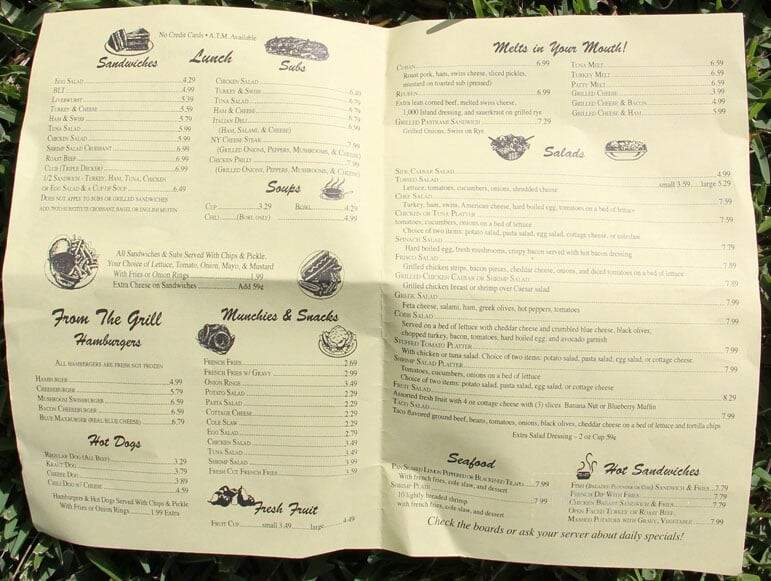 No Credit Cards • A.T.M. Available
Lunch
Sandwiches
EGG SALAD 4.29
BLT 4.99
LIVERWURST 5.39
TURKEY & CHEESE 5.59
HAM & SWISS 5.79
TUNA SALAD 5.79
CHICKEN SALAD 5.99
SHRIMP SALAD CROISSANT 6.99
ROAST BEEF 6.99
CLUB (TRIPLE DECKER) 6.99
1/2 SANDWICH - TURKEY, HAM, TUNA, CHICKEN
OR EGG SALAD & A CUP OF SOUP 6.49
DOES NOT APPLY TO SUBS OR GRILLED SANDWICHES
ADD SUBSTITUTE CROISSANT, BAGEL OR ENGLISH MUFFIN
Subs
CHICKEN SALAD
TURKEY & SWISS 6.49
TUNA SALAD 6.79
HAM & CHEESE 6.79
ITALIAN DELI 6.79
(HAM, SALAMI, & CHEESE) 6.99
NY CHEESE STEAK
(GRILLED ONIONS, PEPPERS, MUSHROOMS, & CHEESE) 7.99
CHICKEN PHILLY
(GRILLED ONIONS, PEPPERS, MUSHROOMS, & CHEESE) 7.99
Soups
CUP 3.29 BOWL 4.29
CHILI (BOWL ONLY) 4.99
All Sandwiches & Subs Served With Chips & Pickle.
Your Choice of Lettuce, Tomato, Onion, Mayo, & Mustard
With Fries or Onion Rings 1.99
Extra Cheese on Sandwiches Add 59¢
From The Grill
Hamburgers
ALL HAMBURGERS ARE FRESH NOT FROZEN
HAMBURGER 4.99
CHEESEBURGER 5.79
MUSHROOM SWISSBURGER 6.59
BACON CHEESEBURGER 6.59
BLUE MAXBURGER (REAL BLUE CHEESE) 6.79
Hot Dogs
REGULAR DOG (ALL BEEF) 3.29
KRAUT DOG 3.79
CHEESE DOG 3.89
CHILI DOG W/ CHEESE 4.59
Hamburgers & Hot Dogs Served With Chips & Pickle
With Fries or Onion Rings 1.99 Extra
Munchies & Snacks
FRENCH FRIES 2.69
FRENCH FRIES W/ GRAVY 2.99
ONION RINGS 3.49
POTATO SALAD 2.29
PASTA SALAD 2.29
COTTAGE CHEESE 2.29
COLE SLAW 2.29
EGG SALAD 2.79
CHICKEN SALAD 3.49
TUNA SALAD 3.49
SHRIMP SALAD 3.99
FRESH CUT FRENCH FRIES 3.59
Fresh Fruit
FRUIT CUP small 3.49 large 4.49
Melts in Your Mouth!
CUBAN 6.99
Roast pork, ham, swiss cheese, sliced pickles,
mustard on toasted sub (pressed)
REUBEN 6.99
Extra lean corned beef, melted swiss cheese,
1,000 Island dressing, and sauerkraut on grilled rye
GRILLED PASTRAMI SANDWICH 7.29
Grilled Onions, Swiss on Rye
TUNA MELT 6.59
TURKEY MELT 6.59
PATTY MELT 6.59
GRILLED CHEESE 3.99
GRILLED CHEESE & BACON 4.99
GRILLED CHEESE & HAM 5.99
Salads
SIDE CAESAR SALAD 4.99
TOSSED SALAD small 3.59 large 5.29
Lettuce, tomatoes, cucumbers, onions, shredded cheese
CHEF SALAD 7.59
Turkey, ham, swiss, American cheese, hard boiled egg, tomatoes on a bed of lettuce
CHICKEN OR TUNA PLATTER 7.59
tomatoes, cucumbers, onions on a bed of lettuce
Choice of two items: potato salad, pasta salad, egg salad, cottage cheese, or coleslaw
SPINACH SALAD 7.79
Hard boiled egg, fresh mushrooms, crispy bacon served with hot bacon dressing
FRISCO SALAD 7.89
Grilled chicken strips, bacon pieces, cheddar cheese, onions, and diced tomatoes on a bed of lettuce
GRILLED CHICKEN CAESAR OR SHRIMP SALAD 7.89
Grilled chicken breast or shrimp over Caesar salad
GREEK SALAD 7.99
Feta cheese, salami, ham, greek olives, hot peppers, tomatoes
COBB SALAD 7.99
Served on a bed of lettuce with cheddar cheese and crumbled blue cheese, black olives,
chopped turkey, bacon, tomatoes, hard boiled egg, and avocado garnish
STUFFED TOMATO PLATTER 7.99
With chicken or tuna salad. Choice of two items: potato salad, pasta salad, egg salad, or cottage cheese.
SHRIMP SALAD PLATTER 7.99
Tomatoes, cucumbers, onions on a bed of lettuce
Choice of two items: potato salad, pasta salad, egg salad, or cottage cheese
FRUIT SALAD 8.29
Assorted fresh fruit with 4 oz cottage cheese with (3) slices Banana Nut or Blueberry Muffin
TACO SALAD 7.99
Taco flavored ground beef, beans, tomatoes, onions, black olives, cheddar cheese on a bed of lettuce and tortilla chips
Extra Salad Dressing – 2 oz Cup 59¢
Seafood
PAN SEARED LEMON PEPPERED OR BLACKENED TILAPIA 7.99
With french fries, cole slaw, and dessert
SHRIMP PLATE 7.99
10 lightly breaded shrimp
with french fries, cole slaw, and dessert
Hot Sandwiches
SANDWICH & FRIES 7.79
FRENCH DIP WITH FRIES 7.79
CHICKEN BREAST SANDWICH & FRIES 7.79
OPEN FACED TURKEY OR ROAST BEEF,
MASHED POTATOES WITH GRAVY, VEGETABLE 7.99
Check the boards or ask your server about daily specials!